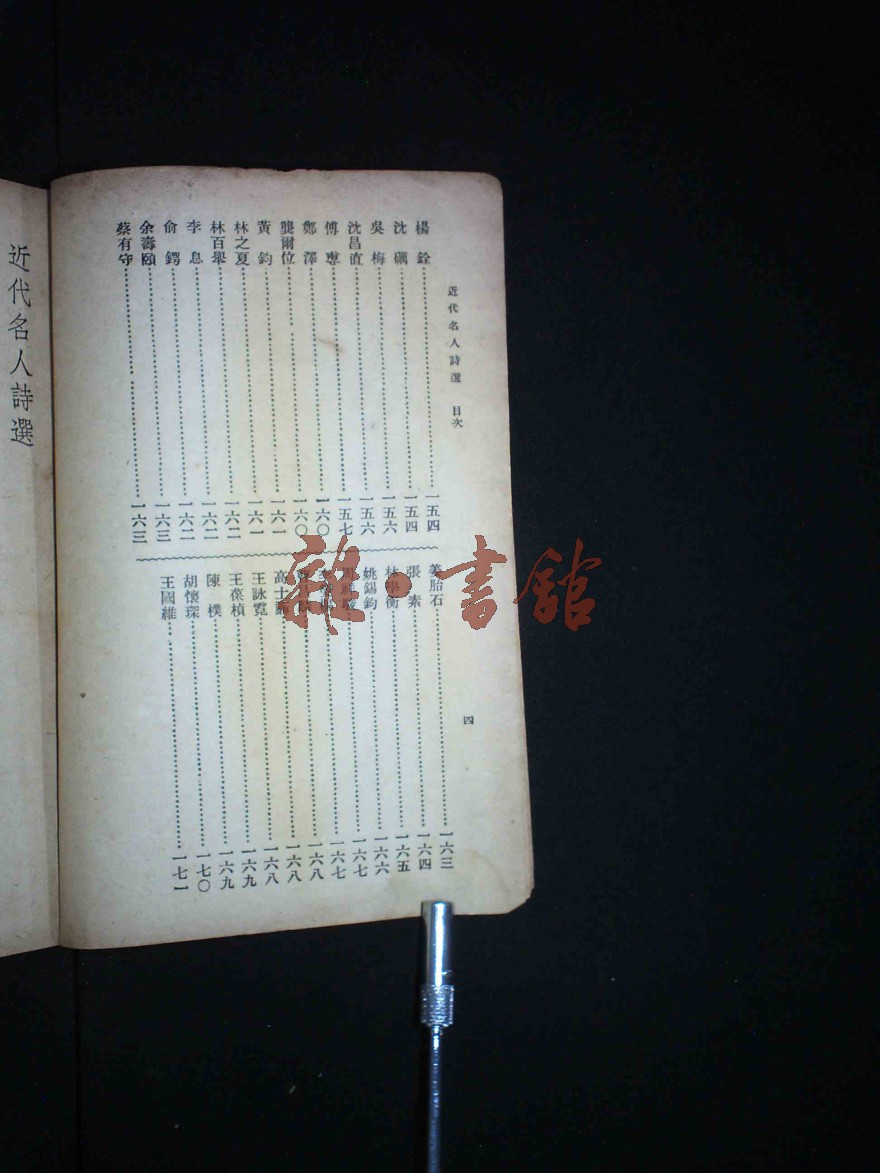 近代名人詩選 目次
楊銓……一五四
沈礪……一五四
吳梅……一五六
沈昌直……一五六
傅尃……一五七
鄭澤……一六〇
龔爾位……一六〇
黃鈞……一六一
林之夏……一六一
林百舉……一六二
李息……一六二
俞鍔……一六二
余壽頤……一六三
蔡有守……一六三
姜胎石……一六三
張素……一六四
林學衡……一六五
姚錫鈞……一六六
……一六七
……一六七
……一六八
高士……一六八
王詠霓……一六八
王葆楨……一六九
陳樸……一六九
胡懷琛……一七〇
王國維……一七一
四
近代名人詩選
雜·書館